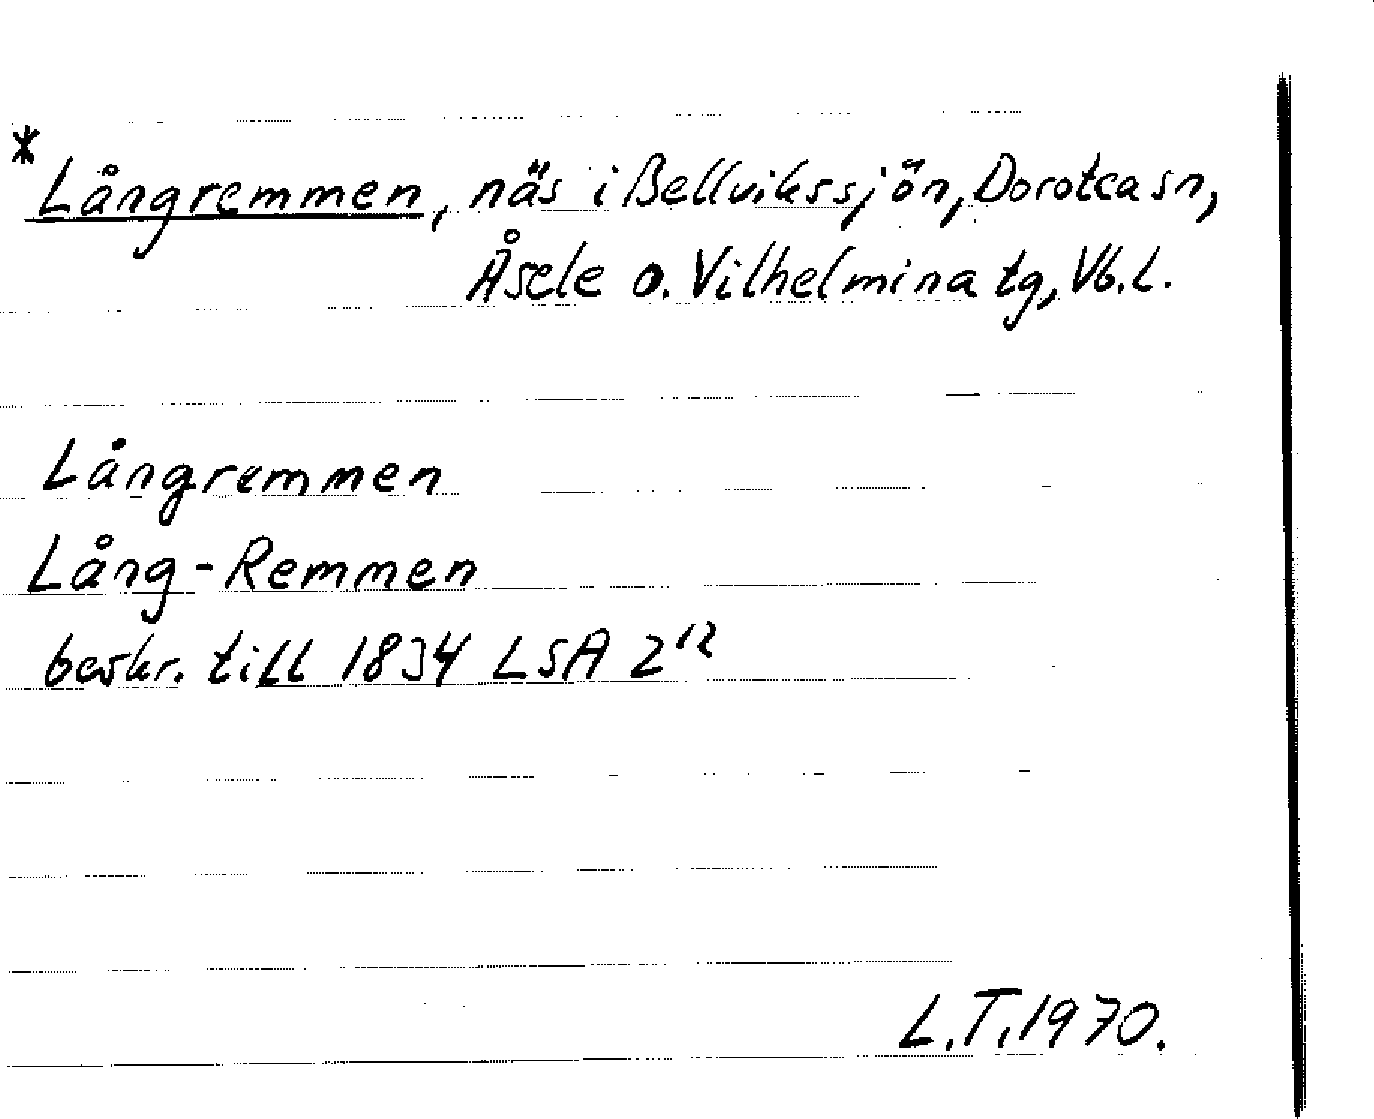 * Långremmen, näs i Bellvikssjön, Dorotea sn,
Åsele o. Vilhelmina tg, Vb.l.
Långremmen
Lång-Remmen
beskr. till 1834 LSA Z¹²
L.T. 1970.